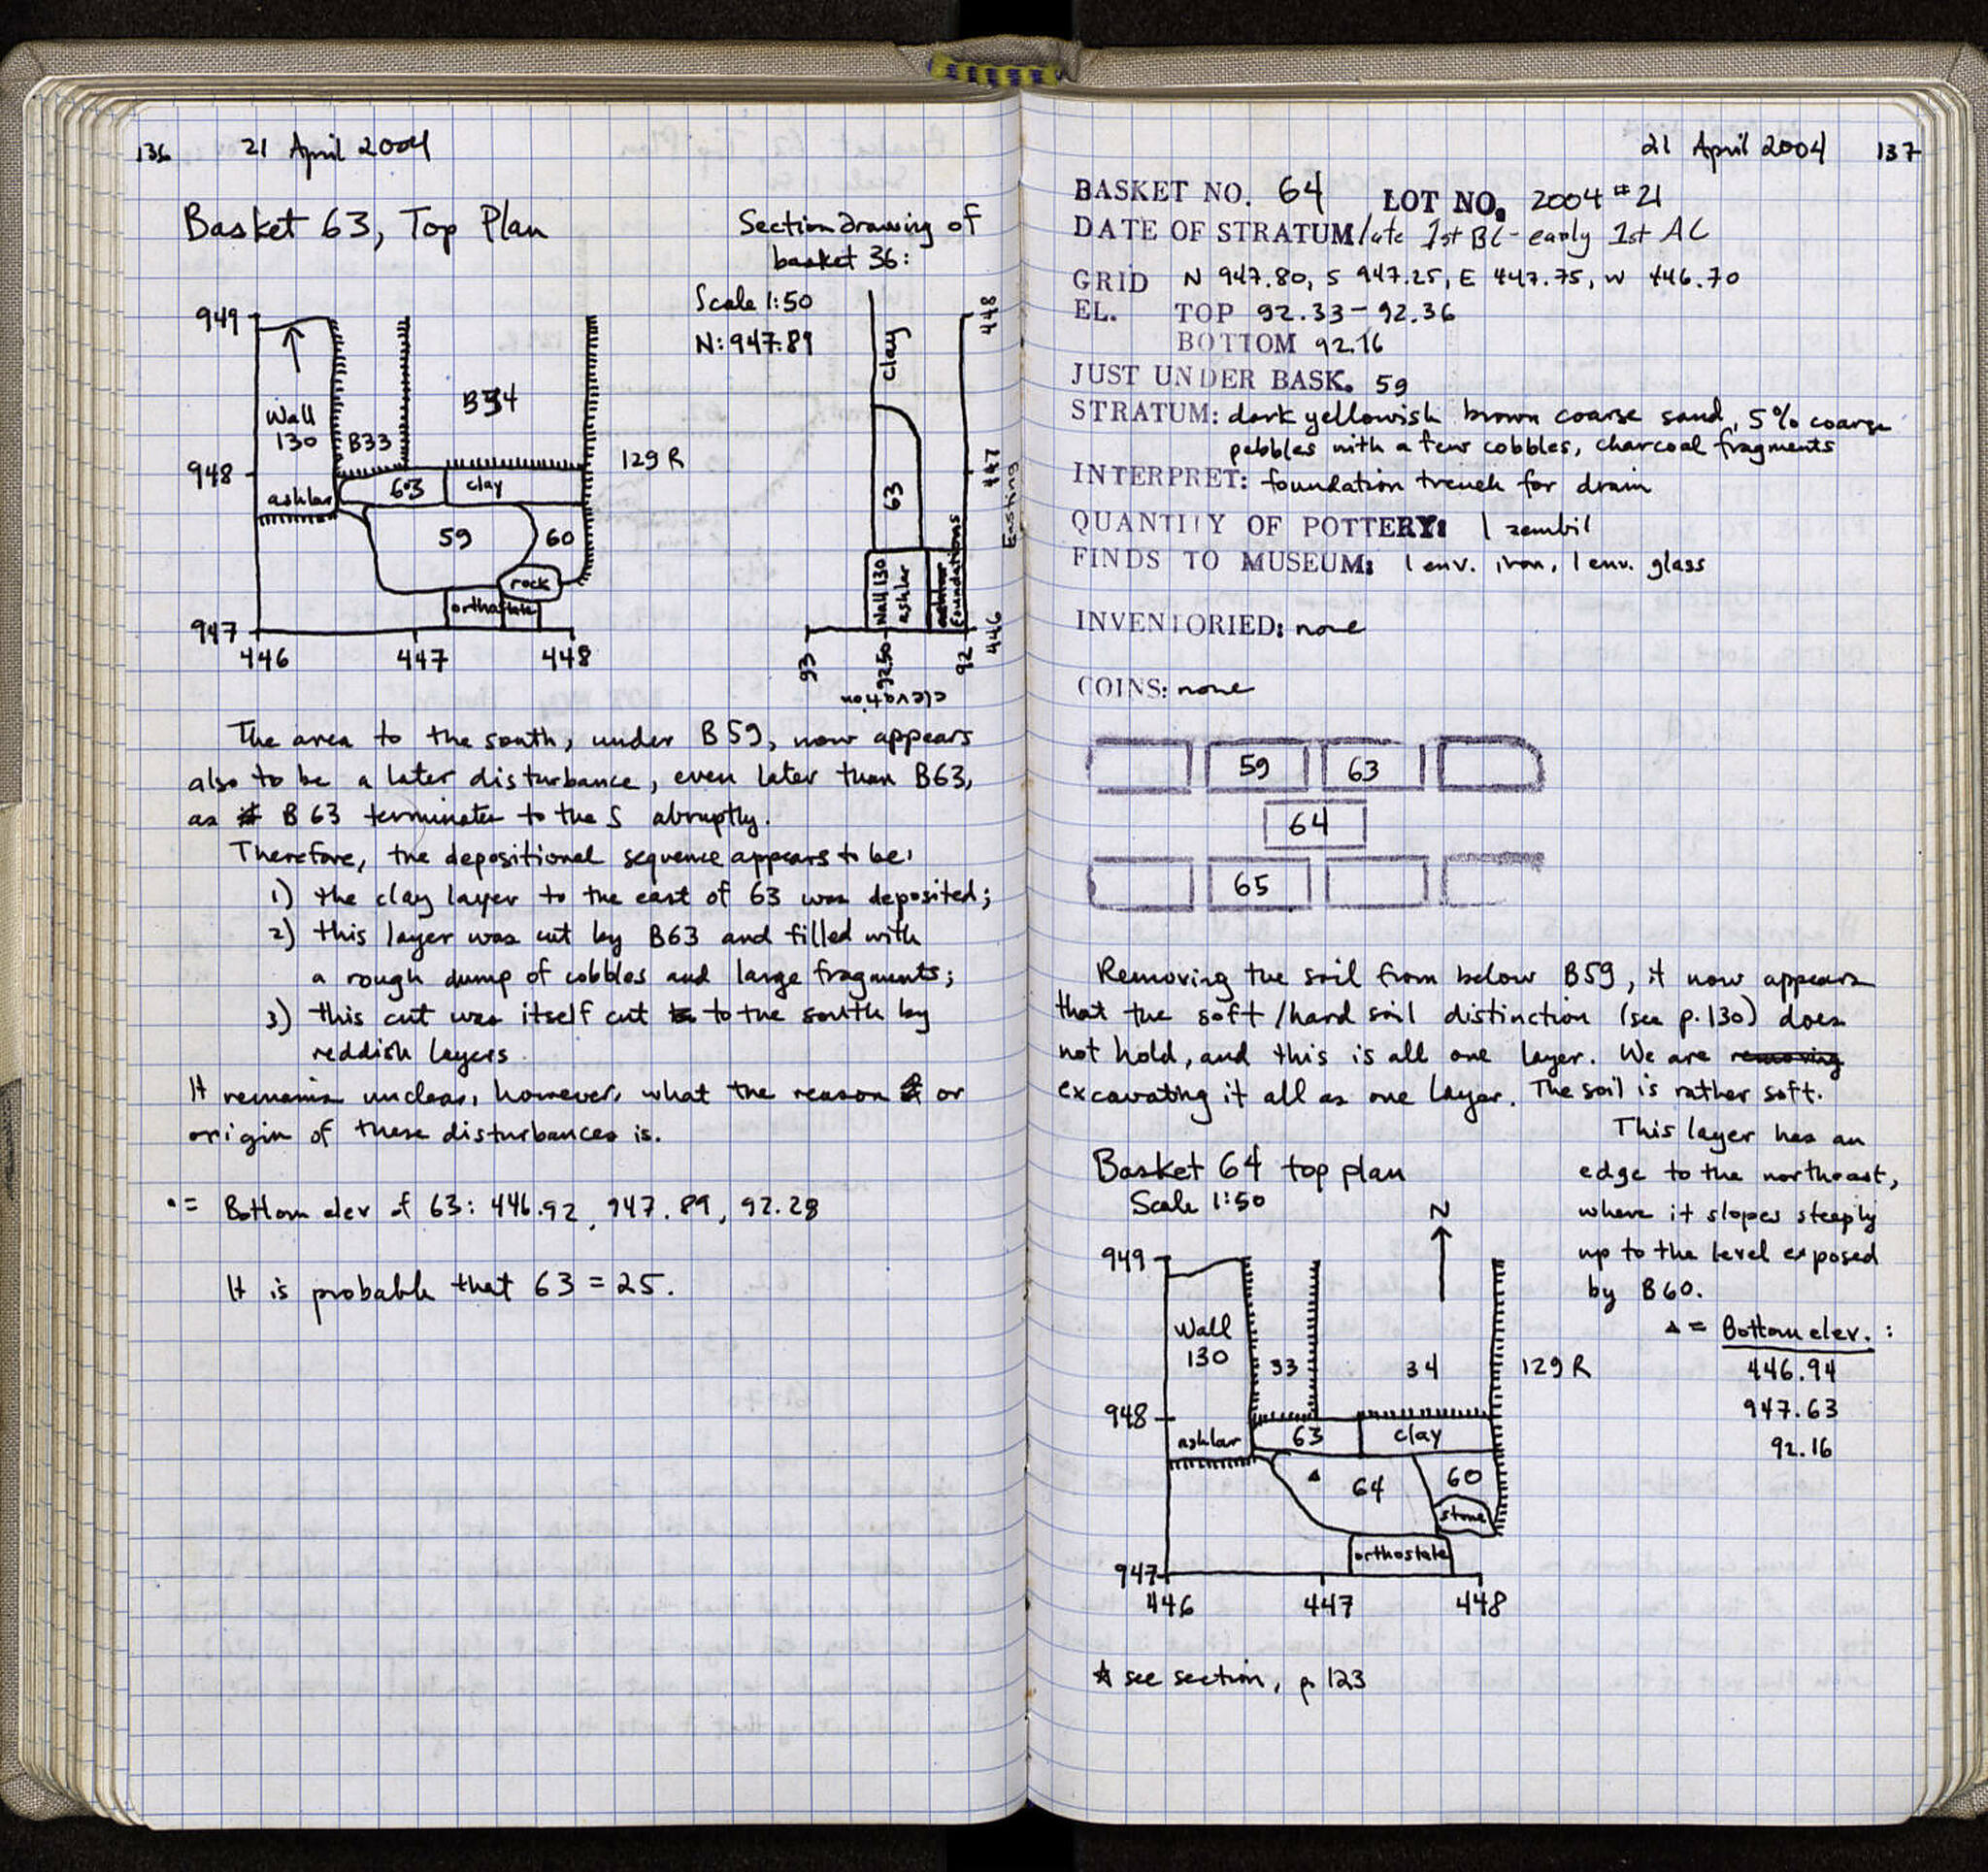 136 21 April 2004
Basket 63, Top Plan
Section drawing of
basket 36:
Scale 1:50
N: 947.89
949
948
947
446 447 448
Wall
130
B33
B34
129 R
ashlar
63
clay
59
60
rock
orthostate
clay
63
Wall 130
ashlar
foundations
448
447
446
Easting
93
92.50
92
elevation
The area to the south, under B59, now appears
also to be a later disturbance, even later than B63,
as B63 terminates to the S abruptly.
Therefore, the depositional sequence appears to be:
1) the clay layer to the east of 63 was deposited;
2) this layer was cut by B63 and filled with
a rough dump of cobbles and large fragments;
3) this cut was itself cut to the south by
reddish layers.
It remains unclear, however, what the reason or
origin of these disturbances is.
•= Bottom elev of 63: 446.92, 947.89, 92.28
It is probable that 63 = 25.
21 April 2004 137
BASKET NO. 64 LOT NO. 2004 #21
DATE OF STRATUM late 1st BC - early 1st AC
GRID N 947.80, S 947.25, E 447.75, W 446.70
EL. TOP 92.33-92.36
BOTTOM 92.16
JUST UNDER BASK. 59
STRATUM: dark yellowish brown coarse sand, 5% coarse
pebbles with a few cobbles, charcoal fragments
INTERPRET: foundation trench for drain
QUANTITY OF POTTERY: 1 zembil
FINDS TO MUSEUM: 1 env. iron, 1 env. glass
INVENTORIED: none
COINS: none
59 63
64
65
Removing the soil from below B59, it now appears
that the soft/hard soil distinction (see p.130) does
not hold, and this is all one layer. We are removing
excavating it all as one layer. The soil is rather soft.
This layer has an
edge to the northeast,
where it slopes steeply
up to the level exposed
by B60.
Basket 64 top plan
Scale 1:50
N
▵ = Bottom elev. :
446.94
947.63
92.16
949
948
947
446 447 448
Wall
130
33
34
129 R
ashlar
63
clay
64
60
stone
orthostate
☆ see section, p. 123